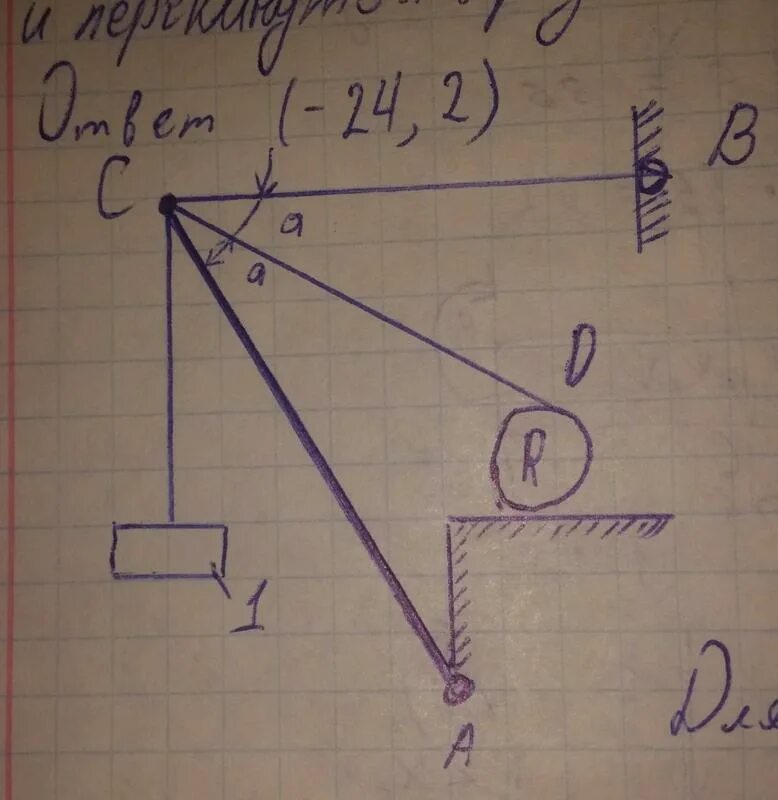 и перекинутой
Ответ (-24,2)
C
B
a
a
D
R
1
A
Для